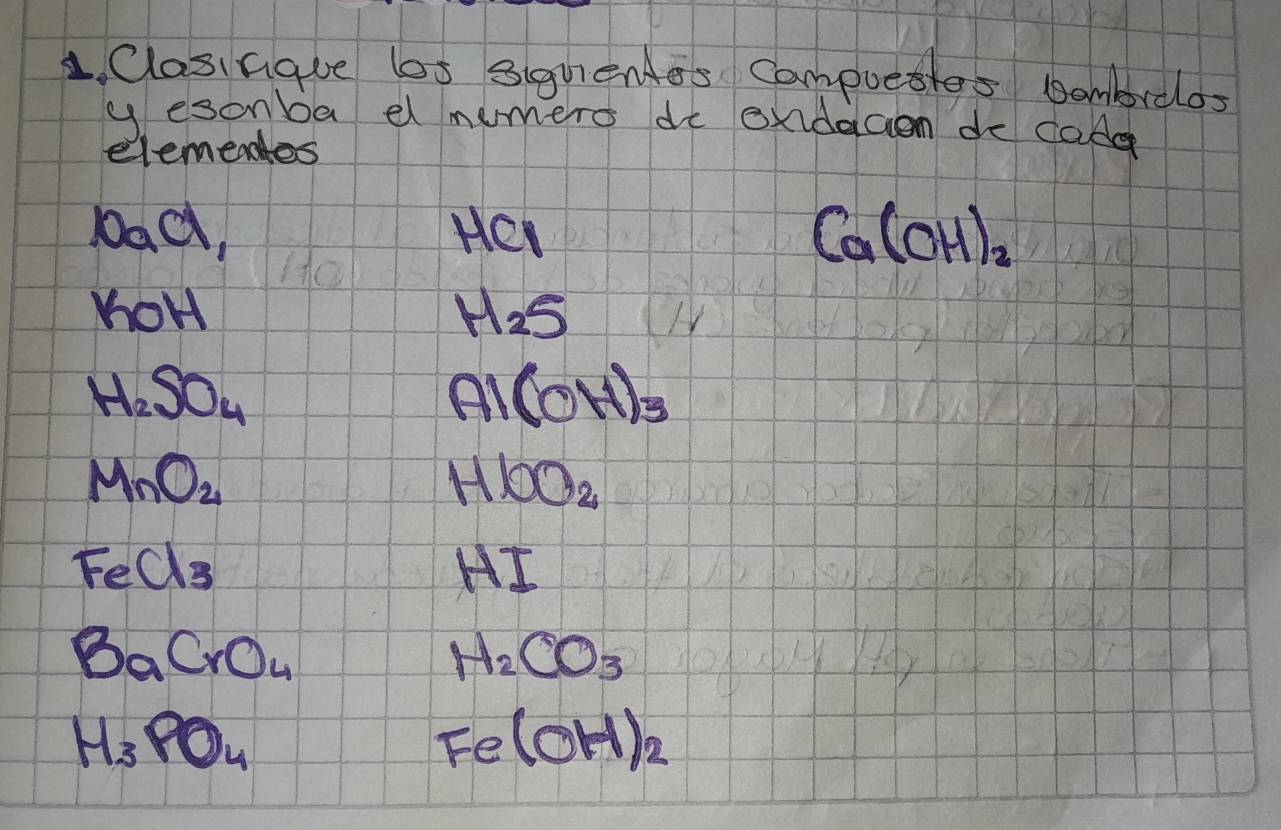 1. Clasifique los siguientes compuestos nombrelos
y escriba el numero de oxidacion de cada
elementos
NaCl, HCl Ca(OH)2
KOH H2S
H2SO4 Al(OH)3
MnO2 HNO2
FeCl3 HI
BaCrO4 H2CO3
H3PO4 Fe(OH)2